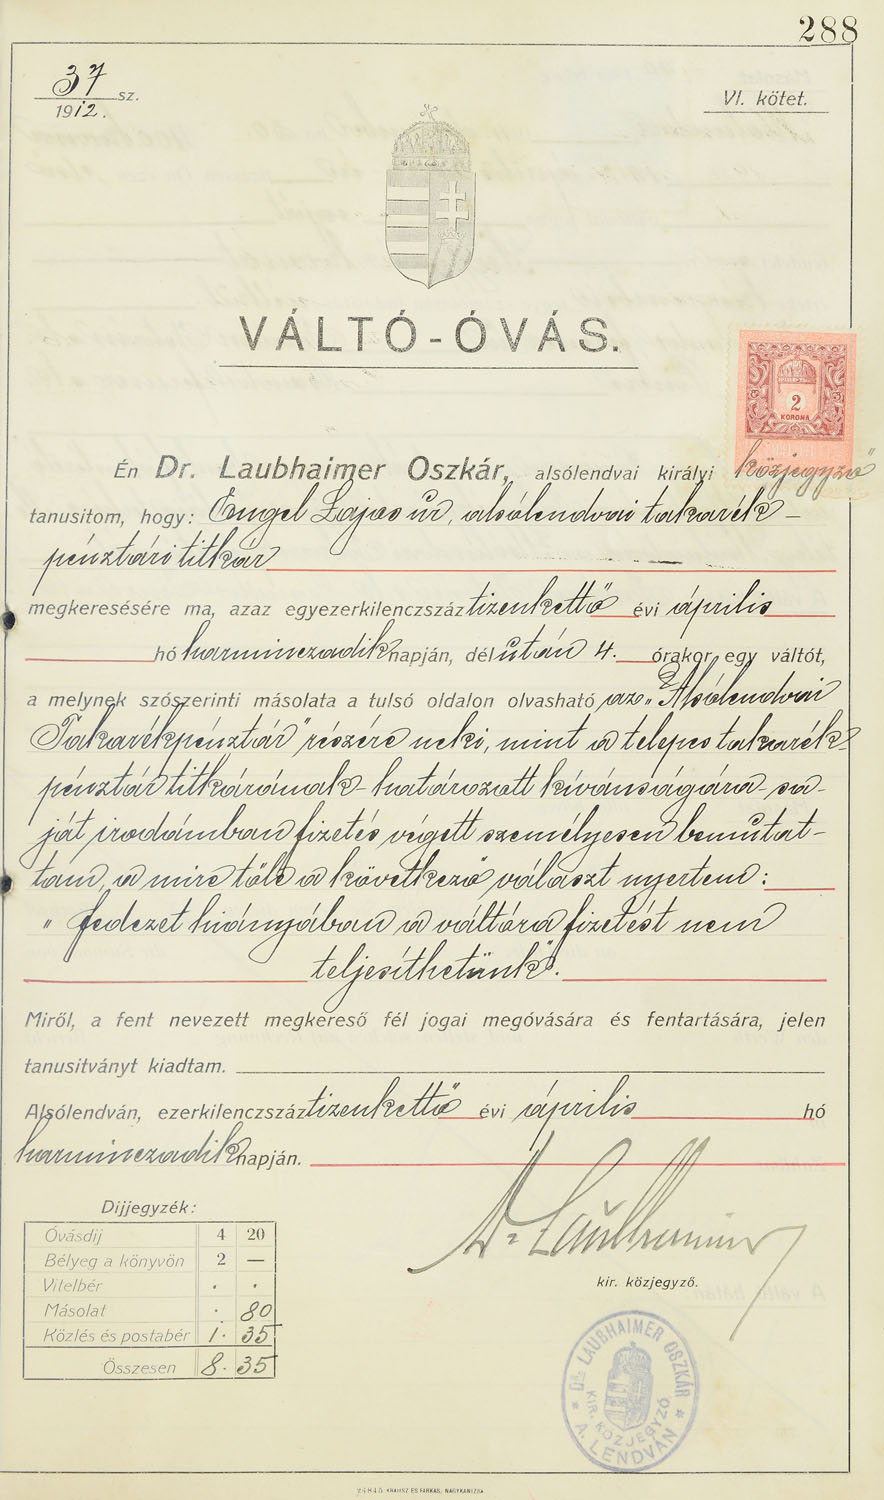 288
37 sz.
1912.
VI. kötet.
VÁLTÓ-ÓVÁS.
2
KORONA
Én Dr. Laubhaimer Oszkár, alsólendvai királyi közjegyző
tanusitom, hogy: Engel Lajos úr, alsólendvai takarék-
pénztári titkár
megkeresésére ma, azaz egyezerkilenczszáz tizenkettő évi április
hó harminczadik napján, dél után 4. órakor egy váltót,
a melynek szószerinti másolata a tulsó oldalon olvasható az „Alsólendvai
Takarékpénztár" részére neki, mint a telepes takarék-
pénztár titkárának - határozott kívánságára - sa-
ját irodámban fizetés végett személyesen bemutat-
tam, a mire tőle a következő választ nyertem:
„fedezet hiányában a váltóra fizetést nem
teljesíthetünk".
Miről, a fent nevezett megkereső fél jogai megóvására és fentartására, jelen
tanusitványt kiadtam.
Alsólendván, ezerkilenczszáz tizenkettő évi április hó
harminczadik napján.
Dr. Laubhaimer
kir. közjegyző.
Dijjegyzék:
Óvásdij 4 20
Bélyeg a könyvön 2 —
Vitelbér . .
Másolat . 80
Közlés és postabér 1. 35
Összesen 8. 35
* DR. LAUBHAIMER OSZKÁR *
KIR. KÖZJEGYZŐ
A. LENDVÁN
24845 KRAUSZ ÉS FARKAS, NAGYKANIZSA